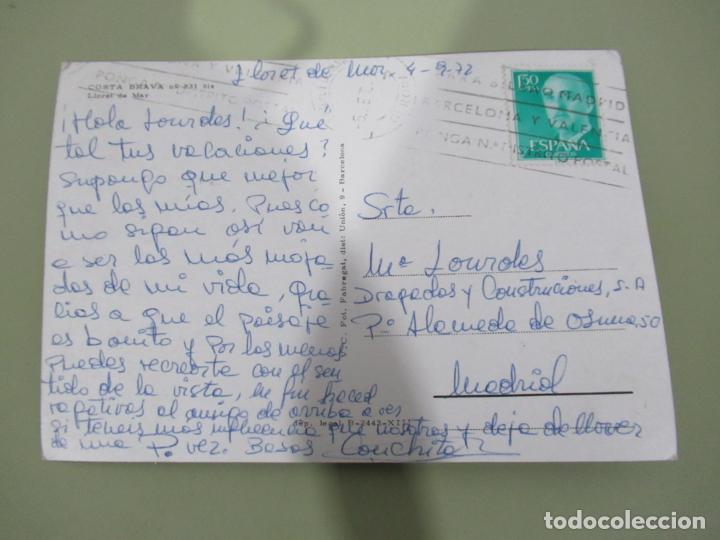 Lloret de Mar 4-9-72
COSTA BRAVA
Lloret de Mar
1'50
ESPAÑA
BILBAO MADRID
BARCELONA Y VALENCIA
PONGA N.º DISTRITO POSTAL
¡Hola Lourdes! ¡Qué
tal tus vacaciones?
Supongo que mejor
que las mías. Pues co
mo sigan así van
a ser las más moja
das de mi vida, gra
cias a que el paisaje
es bonito y por lo menos
puedes recrearte con el sen
tido de la vista, en fin haced
rogativas al amigo de arriba a ver
si teneis más influencia que nosotros y deja de llover
de una P. vez. Besos Conchita
C. Fot. Fabregat, dist: Unión, 9 - Barcelona
Dep. legal B-2443-XII
Srta.
Mª Lourdes
Dragados y Construciones, S.A
Pº Alameda de Osuna, 50
Madrid
todocoleccion